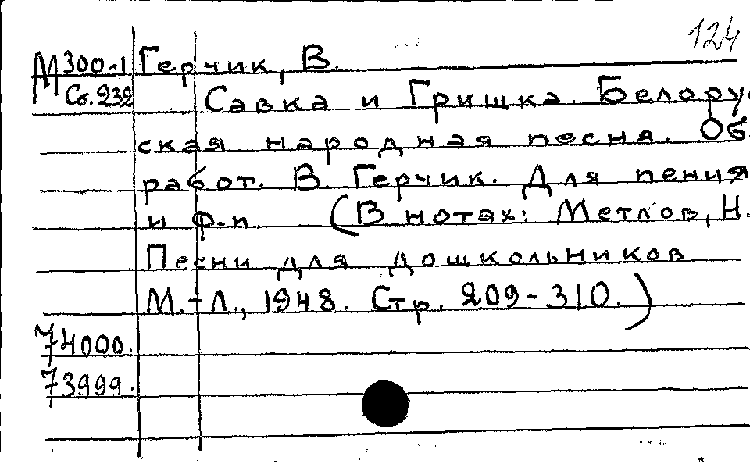 124
М 300-1 Герчик, В.
Сб. 232 Савка и Гришка. Белорус
ская народная песня. Об
работ. В. Герчик. Для пения
и ф-п (В нотах: Метлов, Н.
Песни для дошкольников
М.-Л., 1948. Стр. 209-310.)
74000.
73999.